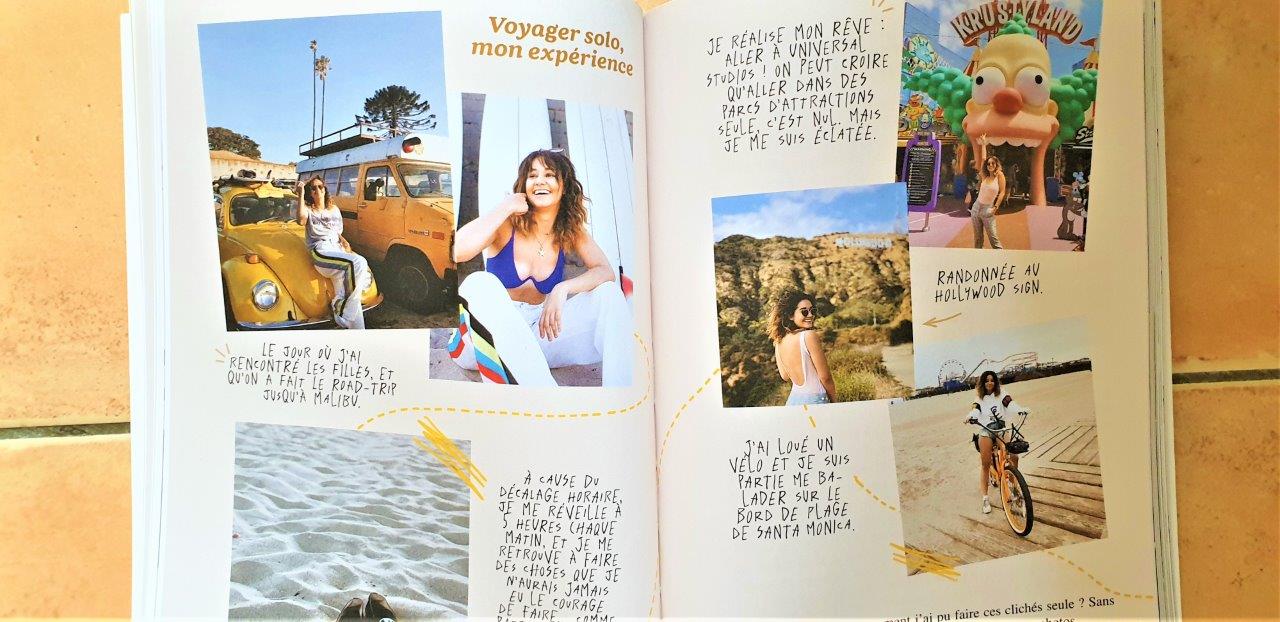 Voyager solo,
mon expérience
LE JOUR OÙ J'AI
RENCONTRÉ LES FILLES, ET
QU'ON A FAIT LE ROAD-TRIP
JUSQU'À MALIBU.
À CAUSE DU
DÉCALAGE HORAIRE,
JE ME RÉVEILLE À
5 HEURES CHAQUE
MATIN. ET JE ME
RETROUVE À FAIRE
DES CHOSES QUE JE
N'AURAIS JAMAIS
EU LE COURAGE
DE FAIRE, COMME
JE RÉALISE MON RÊVE :
ALLER À UNIVERSAL
STUDIOS ! ON PEUT CROIRE
QU'ALLER DANS DES
PARCS D'ATTRACTIONS
SEULE, C'EST NUL. MAIS
JE ME SUIS ÉCLATÉE.
KRUSTYLAND
HOLLYWOOD
RANDONNÉE AU
HOLLYWOOD SIGN.
J'AI LOUÉ UN
VÉLO ET JE SUIS
PARTIE ME BA-
LADER SUR LE
BORD DE PLAGE
DE SANTA MONICA.
j'ai pu faire ces clichés seule ? Sans
photos